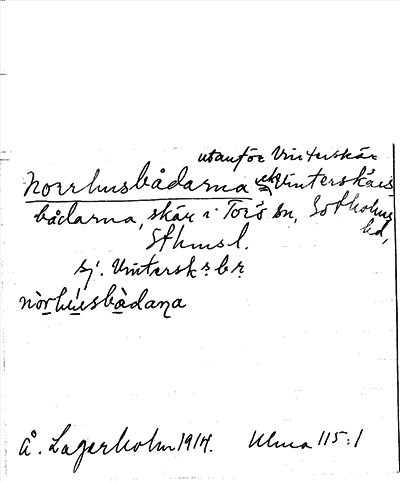 utanför Vinterskär
Norrhusbådarna el. Vinterskärs
bådarna, skär i Torö sn, Sotholms
hd,
Sthmsl.
sj. Vintersk:r b:r
nòrhú̱sbåda̱ɳa
Å. Lagerholm 1914. Ulma 115:1